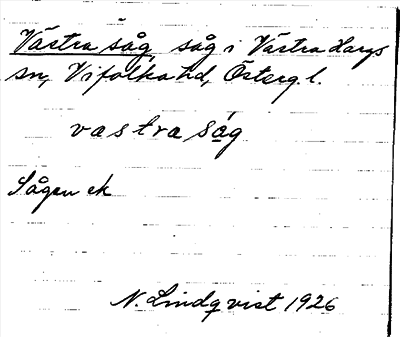 Västra såg, såg i Västra Hargs
sn, Vifolka hd, Österg. l.
vastra såg
Sågen ek
N. Lindqvist 1926